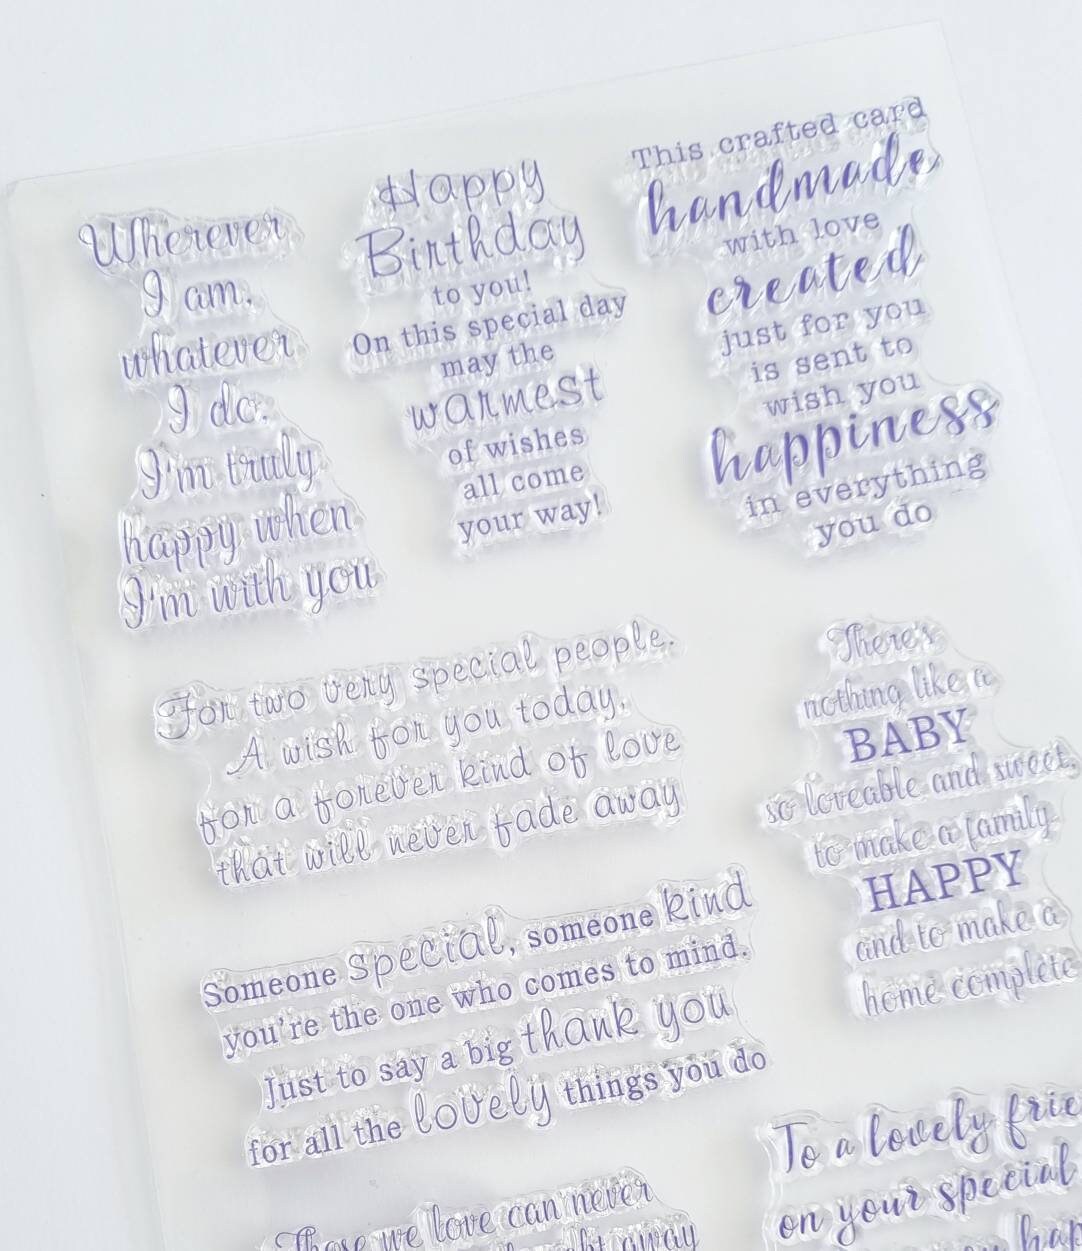 Wherever
I am,
whatever
I do.
I'm truly
happy when
I'm with you
Happy
Birthday
to you!
On this special day
may the
warmest
of wishes
all come
your way!
This crafted card
handmade
with love
created
just for you
is sent to
wish you
happiness
in everything
you do
For two very special people.
A wish for you today,
for a forever kind of love
that will never fade away
There's
nothing like a
BABY
so loveable and sweet,
to make a family
HAPPY
and to make a
home complete
Someone special, someone kind
you're the one who comes to mind.
Just to say a big thank you
for all the lovely things you do
Those we love can never
away
To a lovely frie
on your special
hap